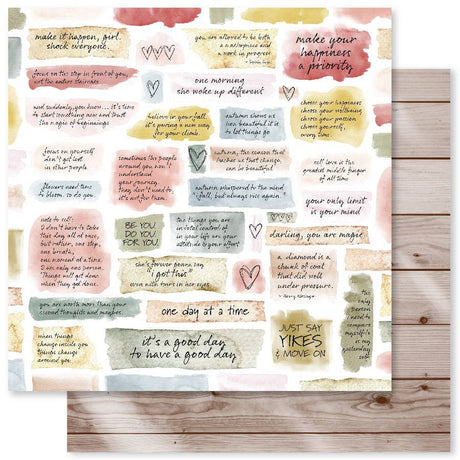 make it happen, girl.
shock everyone.
you are allowed to be both
a masterpiece and a
work in progress
make your
happiness
a priority
focus on the step in front of you,
not the entire staircase
one morning
she woke up different
and suddenly, you know... it's time
to start something new and trust
the magic of beginnings
believe in yourself,
it's paving a new way
for your climb
autumn shows us
how beautiful it is
to let things go
choose your happiness
choose your wellbeing
choose your passion
choose yourself,
every time.
focus on yourself
don't get lost
in other people
sometimes the people
around you won't
understand
your journey.
they don't need to,
it's not for them
autumn, the season that
teaches us that change
can be beautiful
self love is the
greatest middle finger
of all time
flowers need time
to bloom. so do you
autumn whispered to the wind
I fall, but always rise again
your only limit
is your mind
note to self:
I don't have to take
this day all at once,
but rather, one step,
one breath,
one moment at a time.
I am only one person.
Things will get done
when they get done.
BE YOU.
DO YOU.
FOR YOU.
two things you are
in total control of
in your life are your
attitude & your effort
darling, you are magic
she's forever gonna say
"I got this"
even with tears in her eyes
a diamond is a
chunk of coal
that did well
under pressure.
- Henry Kissinger
you are worth more than your
second thoughts and maybes.
one day at a time
the
only
person
need to
compare
myself to
is my
yesterday
self
when things
change inside you
things change
around you
it's a good day
to have a good day
JUST SAY
YIKES
& MOVE ON